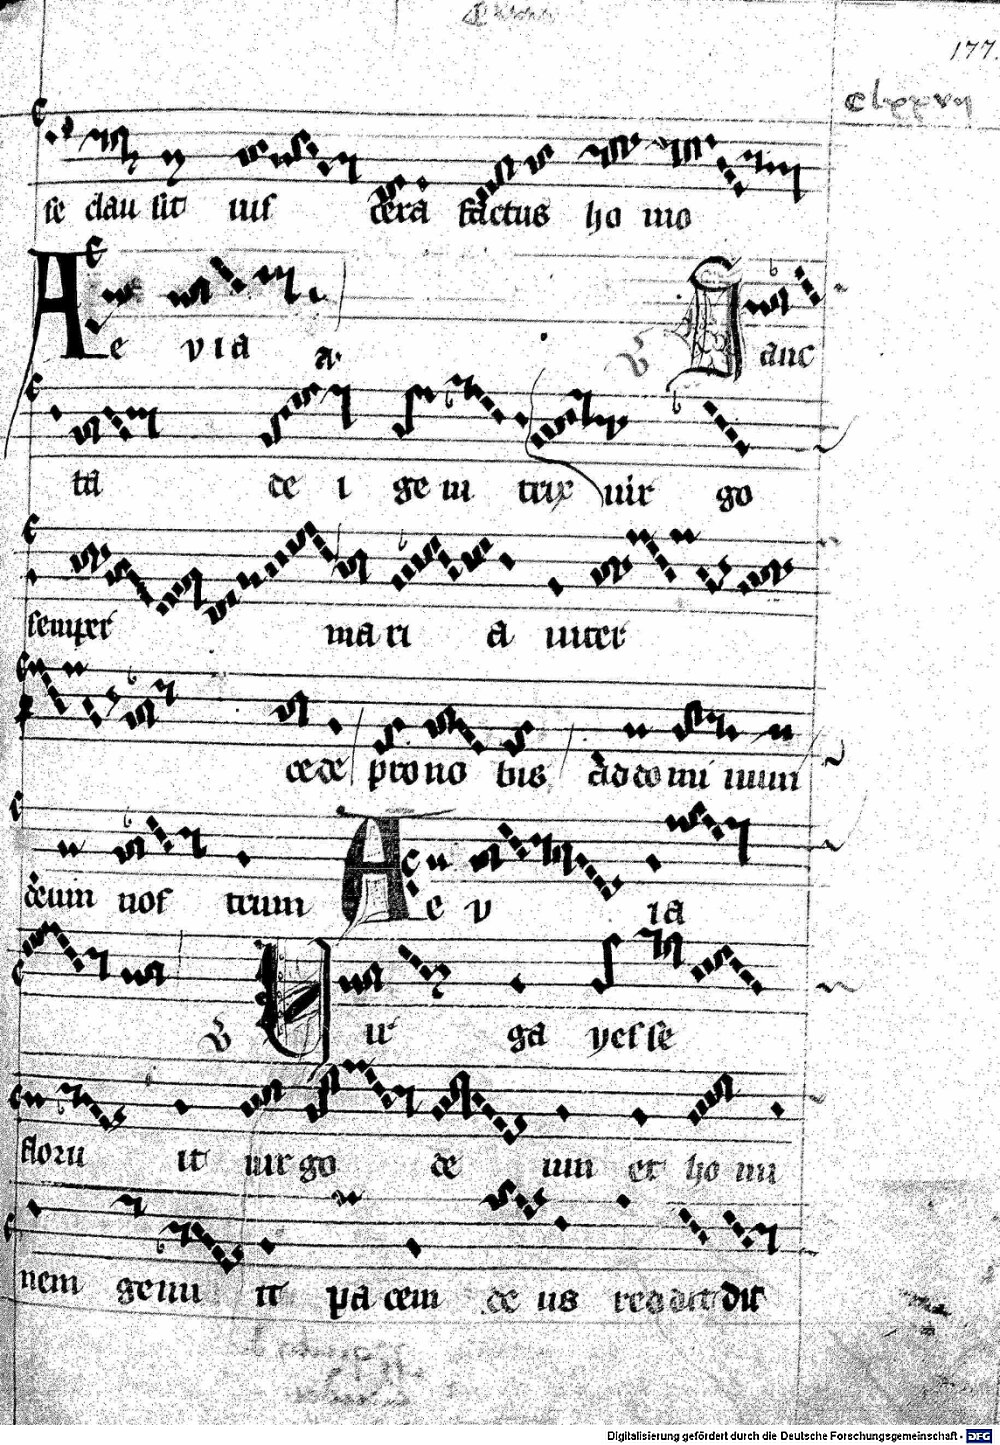 177.
clxxvij
se clau sit uis cera factus ho mo
Ae via a. V Sanc
ta de i geni trix vir go
semper mari a inter
cede pro no bis ad do mi num
deum nos trum Ae v ia
V Vir ga yesse
floru it virgo de um et ho mi
nem genu it pa cem de us reddidit
Digitalisierung gefördert durch die Deutsche Forschungsgemeinschaft - DFG